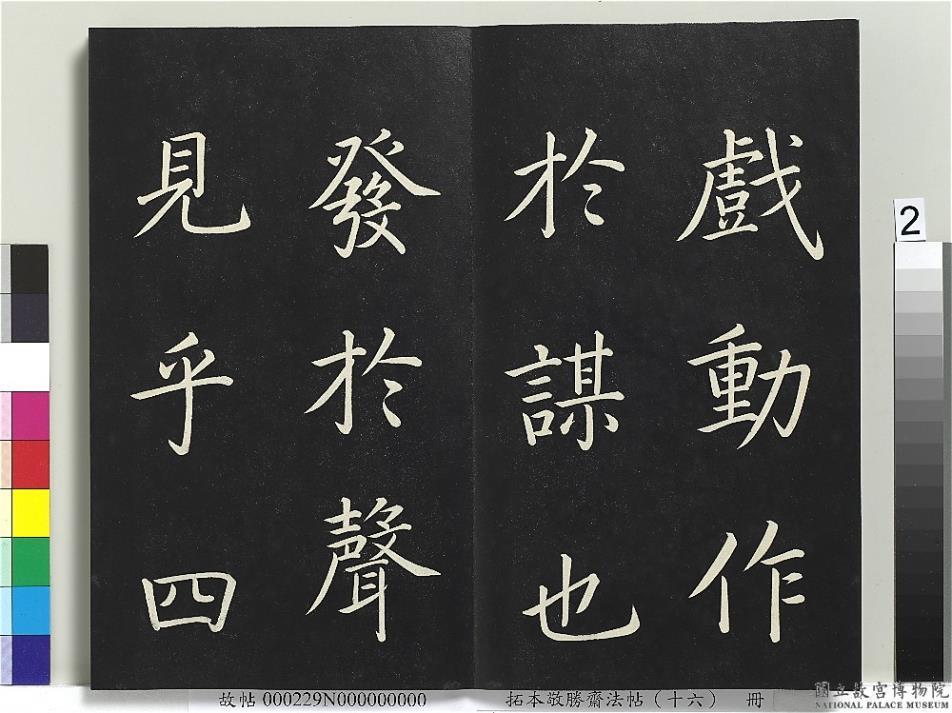 戲動作
於謀也
發於聲
見乎四
2
故帖 000229N000000000
拓本敬勝齋法帖（十六） 冊
國立故宮博物院
NATIONAL PALACE MUSEUM